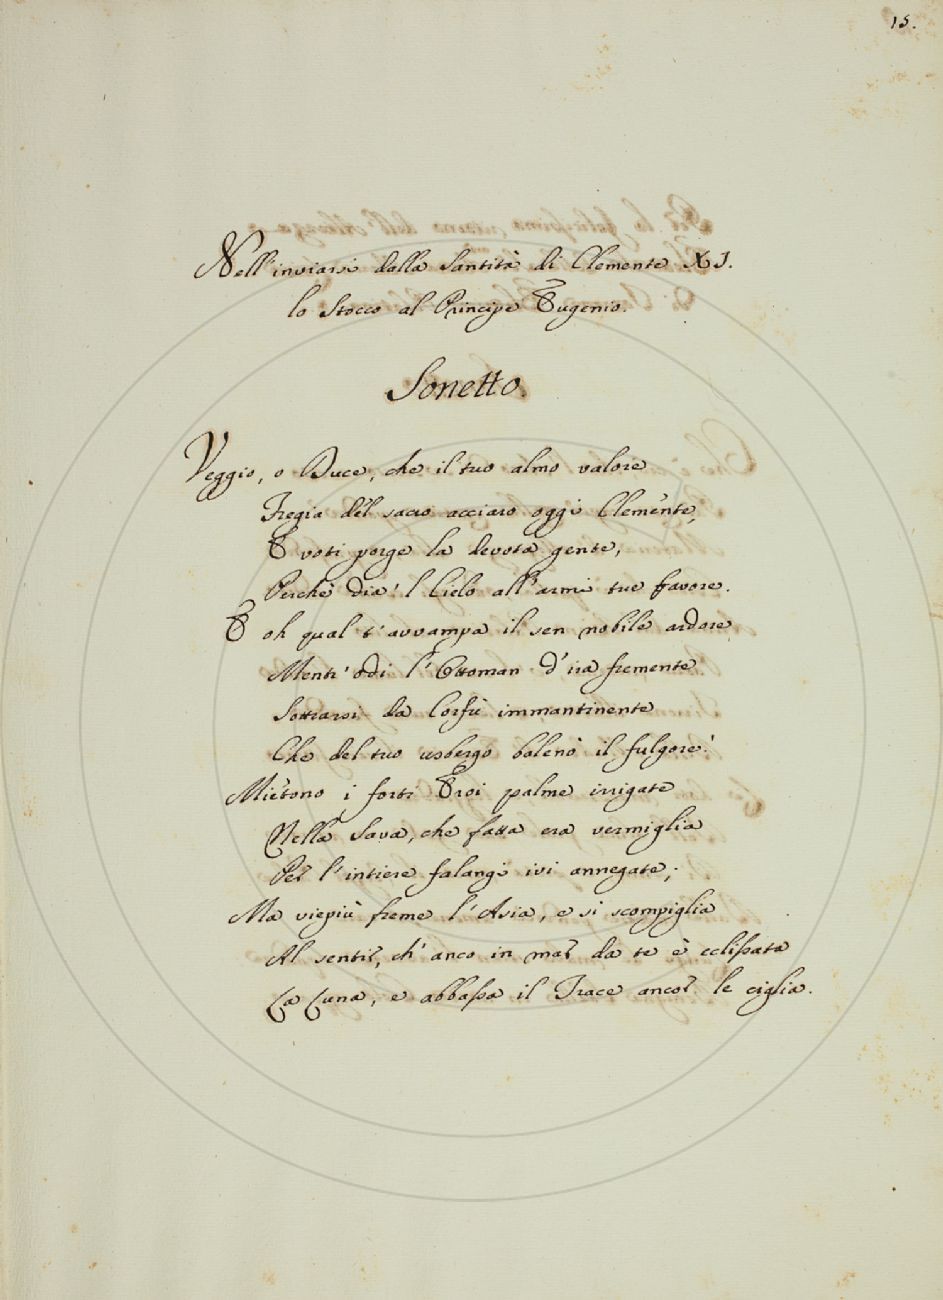 15.
Nell'inviarsi dalla Santità di Clemente XI.
lo Stocco al Principe Eugenio.
Sonetto.
Veggio, o Duce, che il tuo almo valore
Fregia del sacro acciaro oggi Clemente,
E voti porge la devota gente,
Perchè dia'l Cielo all'armi tue favore.
E oh qual t'avvampa il sen nobile ardore
Mentr'odi l'Ottoman d'ira fremente
Sottrarsi da Corfù immantinente
Che del tuo usbergo balenò il fulgore!
Mietono i forti Eroi palme irrigate
Nella Sava, che fatta era vermiglia
Per l'intiere falangi ivi annegate;
Ma viepiù freme l'Asia, e si scompiglia
Al sentir, ch'anco in mar da te è eclissata
La Luna, e abbassa il Trace ancor le ciglia.